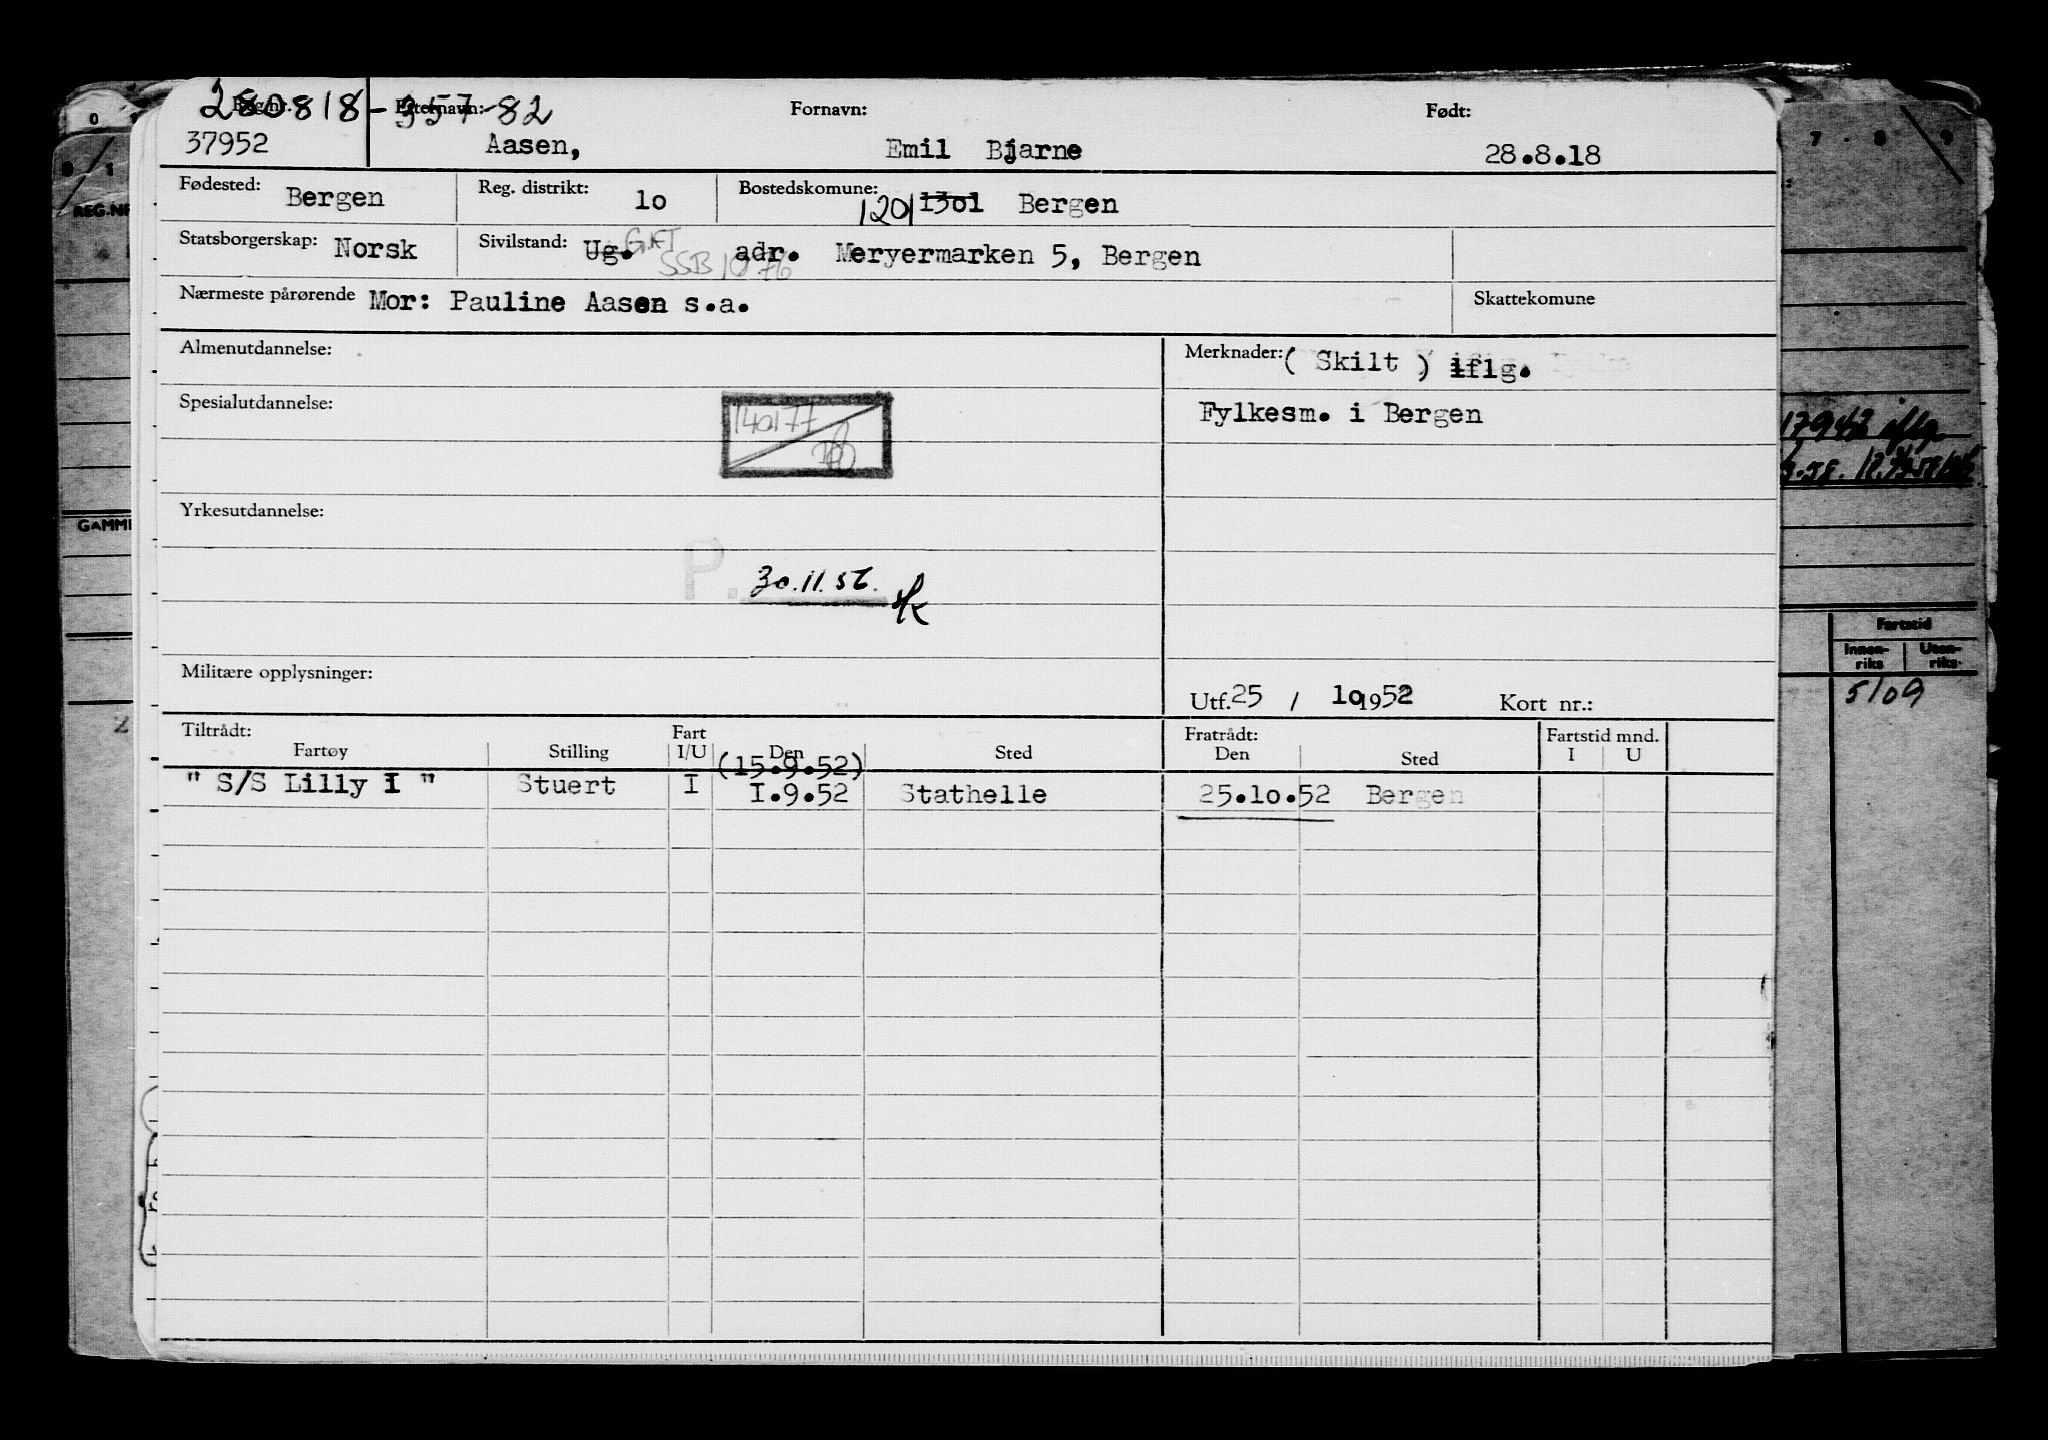 280818-35782
Reg.nr. Etternavn: Fornavn: Født:
37952 Aasen, Emil Bjarne 28.8.18
Fødested: Bergen Reg. distrikt: lo Bostedskomune: 1201 13o1 Bergen
Statsborgerskap: Norsk Sivilstand: Ug. GIFT adr. Meryermarken 5, Bergen
SSB 10 76
Nærmeste pårørende Mor: Pauline Aasen s.a. Skattekomune
Almenutdannelse: Merknader: ( Skilt ) iflg.
Spesialutdannelse: Fylkesm. i Bergen
140177
Yrkesutdannelse:
P. 30.11.56.
Militære opplysninger:
Utf. 25 / lo 1952 Kort nr.:
Tiltrådt: Fart Fratrådt: Fartstid mnd.
Fartøy Stilling I/U Den Sted Den Sted I U
(15.9.52)
" S/S Lilly I " Stuert I I.9.52 Stathelle 25.lo.52 Bergen
REG.NR
GAMME
7 - 8 9
17942 iflg.
Fartstid
Innen-riks Uten-riks
5109